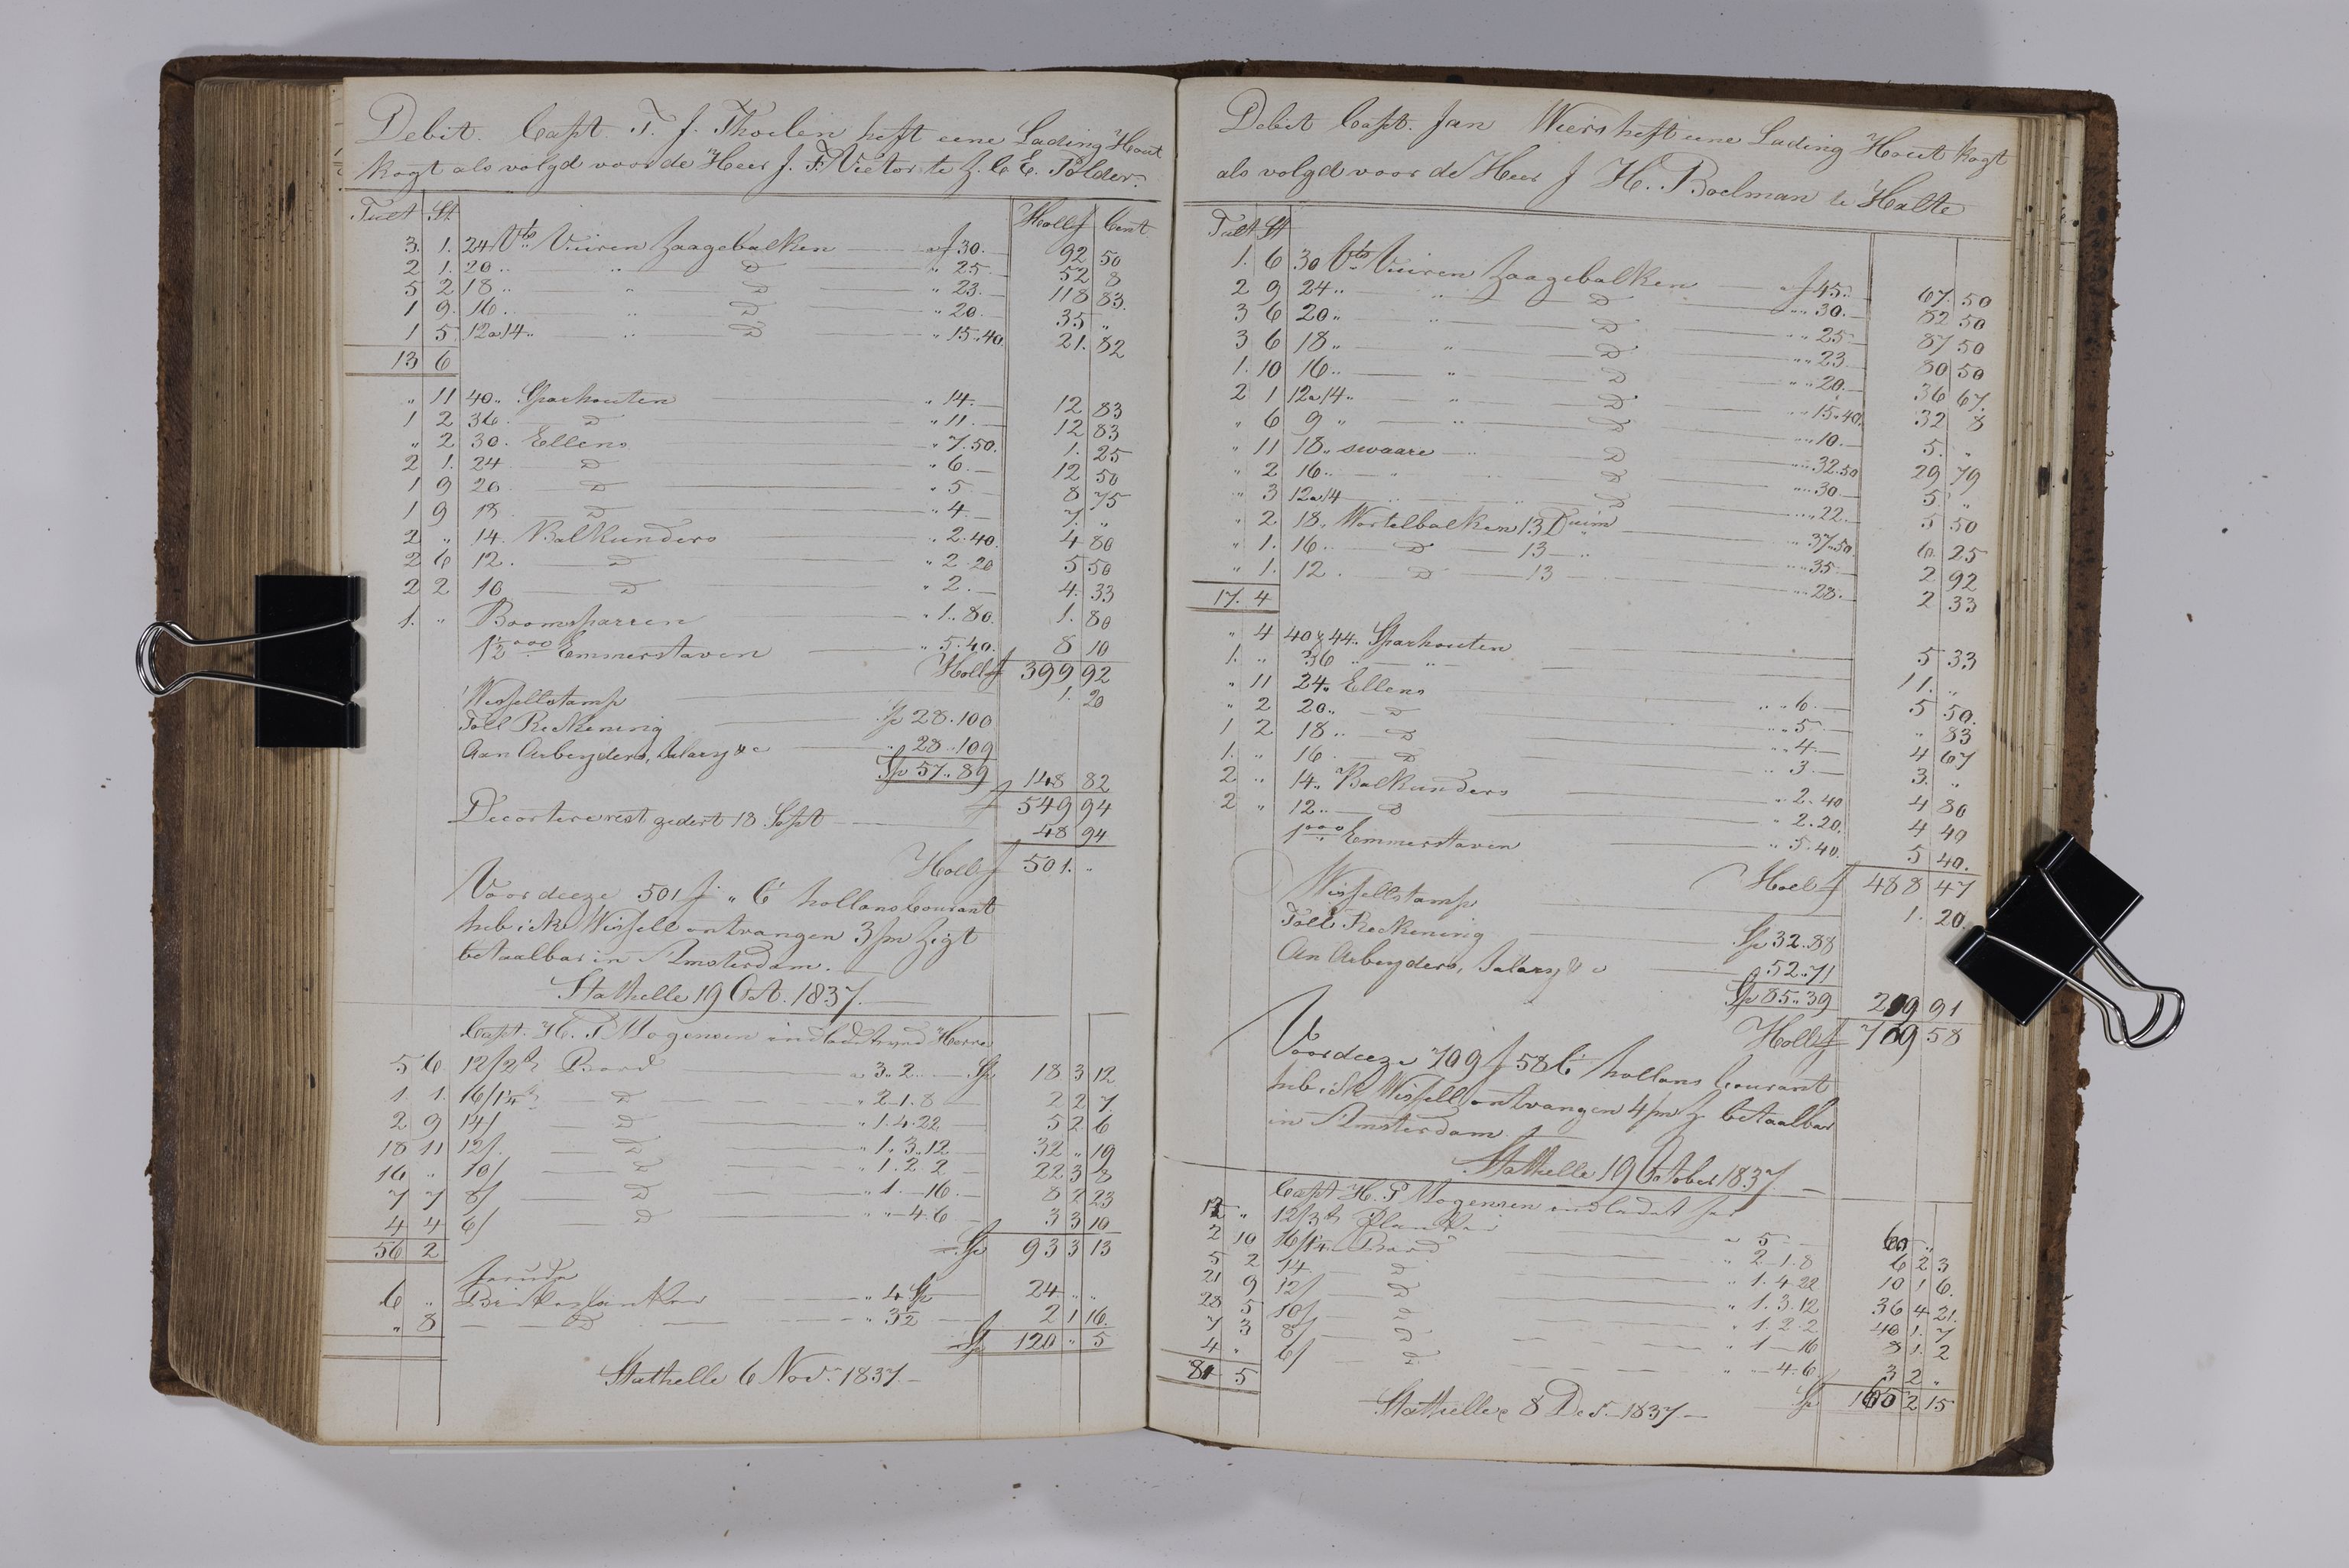 Debit. Capt. T. J. Tholen heft eene Lading Hout
kogt als volgd voor de Heer J. F. Vietor te Z. C. E. Polder.
Tult St Holl f Cent
3. 1. 24 Vts Vuiren Zaagebalken a f 30.— 92 50
2 1. 20 „ „ D „ 25— 52 8
5 2 18 „ „ D „ 23.— 118 83.
1 9. 16 „ „ D „ 20.— 35 „
1 5. 12 a 14 „ „ D „ 15.40. 21. 82
13 6
„ 11 40 „ Sparhouten „ 14.— 12 83
1 2 36. D „ 11.— 12 83
„ 2 30. Ellens „ 7.50. 1. 25
2 1. 24 D „ 6.— 12 50
1 9 20. D „ 5— 8 75
1 9 18. D „ 4.— 7. „
2 „ 14. Balkunders „ 2.40. 4 80
2 6 12. D „ 2.20 5 50
2 2 10 D „ 2.— 4. 33
1. „ Boomsparren „ 1.80. 1. 80
1½ 000 Emmerstaven „ 5.40. 8 10
Holl f 399 92
Wissellstamp 1. 20
Toll Reckening Sp 28.100
Aan Arbeyders, Salary &c „ 28.109
Sp 57.89 148 82
f 549 94
Decortere rest gedert 18 Sept 48 94
Holl f 501. „
Voor deeze 501 f „ C hollans Courant
heb ick Wissell ontvangen 3/m Zigt
betaalbar in Amsterdam.
Stathelle 19 Oct. 1837.—
Capt. H. P. Mogensen indladt
5 6. 12/2 Bord a 3.2 Sp 18 3 12
1. 1. 16/1¼ D „ 2-1.8 2 2 7.
2 9 14/ D „ 1.4.22 5 2 6
18 11 12/. D „ 1.3.12 32 „ 19
16 „ 10/ D „ 1.2.2 22 3 8
7 7 8/ D „ 1.—16.— 8 2 23
4 4 6/ D „ „—4.6 3 3 10
56 2 Sp 93 3 13
6 „ „ 4 Sp 24 „ „
„ 8 D „ 3½ 2 1 16.
Sp 120 „ 5
Stathelle 6 Nov. 1837.—
Debit Capt. Jan Wiers heft eene Lading Hout kogt
als volgd voor de Heer J H. Boelman te Halte
Tult St
1. 6 30 Vts Vuiren Zaagebalken a f 45. 67. 50
2 9 24 „ „ D „ 30.— 82 50
3 6 20 „ „ D „ 25— 87 50
3 6 18 „ „ D „ 23 80 50
1. 10 16 „ „ D „ 20.— 36 67.
2 1 12 a 14 „ „ D „ 15.40. 32 8
„ 6 9 „ „ D „ 10.— 5. „
„ 11 18 „ swaare D „ 32.50 29 79
„ 2 16 „ „ D „ 30— 5. „
„ 3 12 a 14 „ D „ 22.— 5 50
„ 2 18. Wortelbalken 13 Duim „ 37.50. 6. 25
„ 1. 16 „ D 13 „ „ 35.— 2 92
„ 1. 12. D 13 „ 28.— 2 33
17. 4
„ 4 40 & 44 „ Sparhouten 5 33
1. „ 36 „ „ 11. „
„ 11 24 „ Ellens „ 6.— 5 50.
„ 2 20 „ D „ 5— „ 83
1 2 18 „ D „ 4— 4 67
1. „ 16 „ D „ 3.— 3. „
2 „ 14 „ Balkunders „ 2.40 4 80
2 „ 12 „ D „ 2.20. 4 40
1000 Emmerstaven „ 5.40. 5 40.
Holl f 488 47
Wissellstamp 1. 20.
Toll Reckening Sp 32.88
An Arbeyders, Salary &c 52.71
Sp 85.39 219 91
Holl f 709 58
Voor deeze 709 f 58 C hollans Courant
heb ick Wissell ontvangen 4/m Z. betaalbar
in Amsterdam
Stathelle 19 October 1837.—
Capt H. P Mogensen indladt
12 „ 12/3 Planker a 5— 60 „ „
2 10 16/1¼ Bord „ 2-1.8 6 2 3
5 2 14 D „ 1.4.22 10 1 6.
21 9 12/ D „ 1.3.12 36 4 21.
28 5 10/ D „ 1.2.2 40 1. 7
7 3 8/ D „ 1—16 8 1. 2
4 „ 6/ D „—4.6 3 2 „
81 5 Sp 165 2 15
Stathelle 8 Dec. 1837—